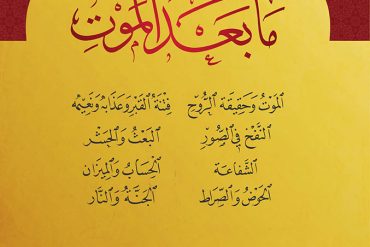 مَا بَعْدَ المَوْتِ
المَوْتُ وَحَقِيقَةُ الرُّوحِ فِتْنَةُ القَبْرِ وَعَذَابُهُ وَنَعِيمُهُ
النَّفْخُ فِي الصُّورِ البَعْثُ وَالحَشْرُ
الشَّفَاعَةُ الحِسَابُ وَالمِيزَانُ
الحَوْضُ وَالصِّرَاطُ الجَنَّةُ وَالنَّارُ